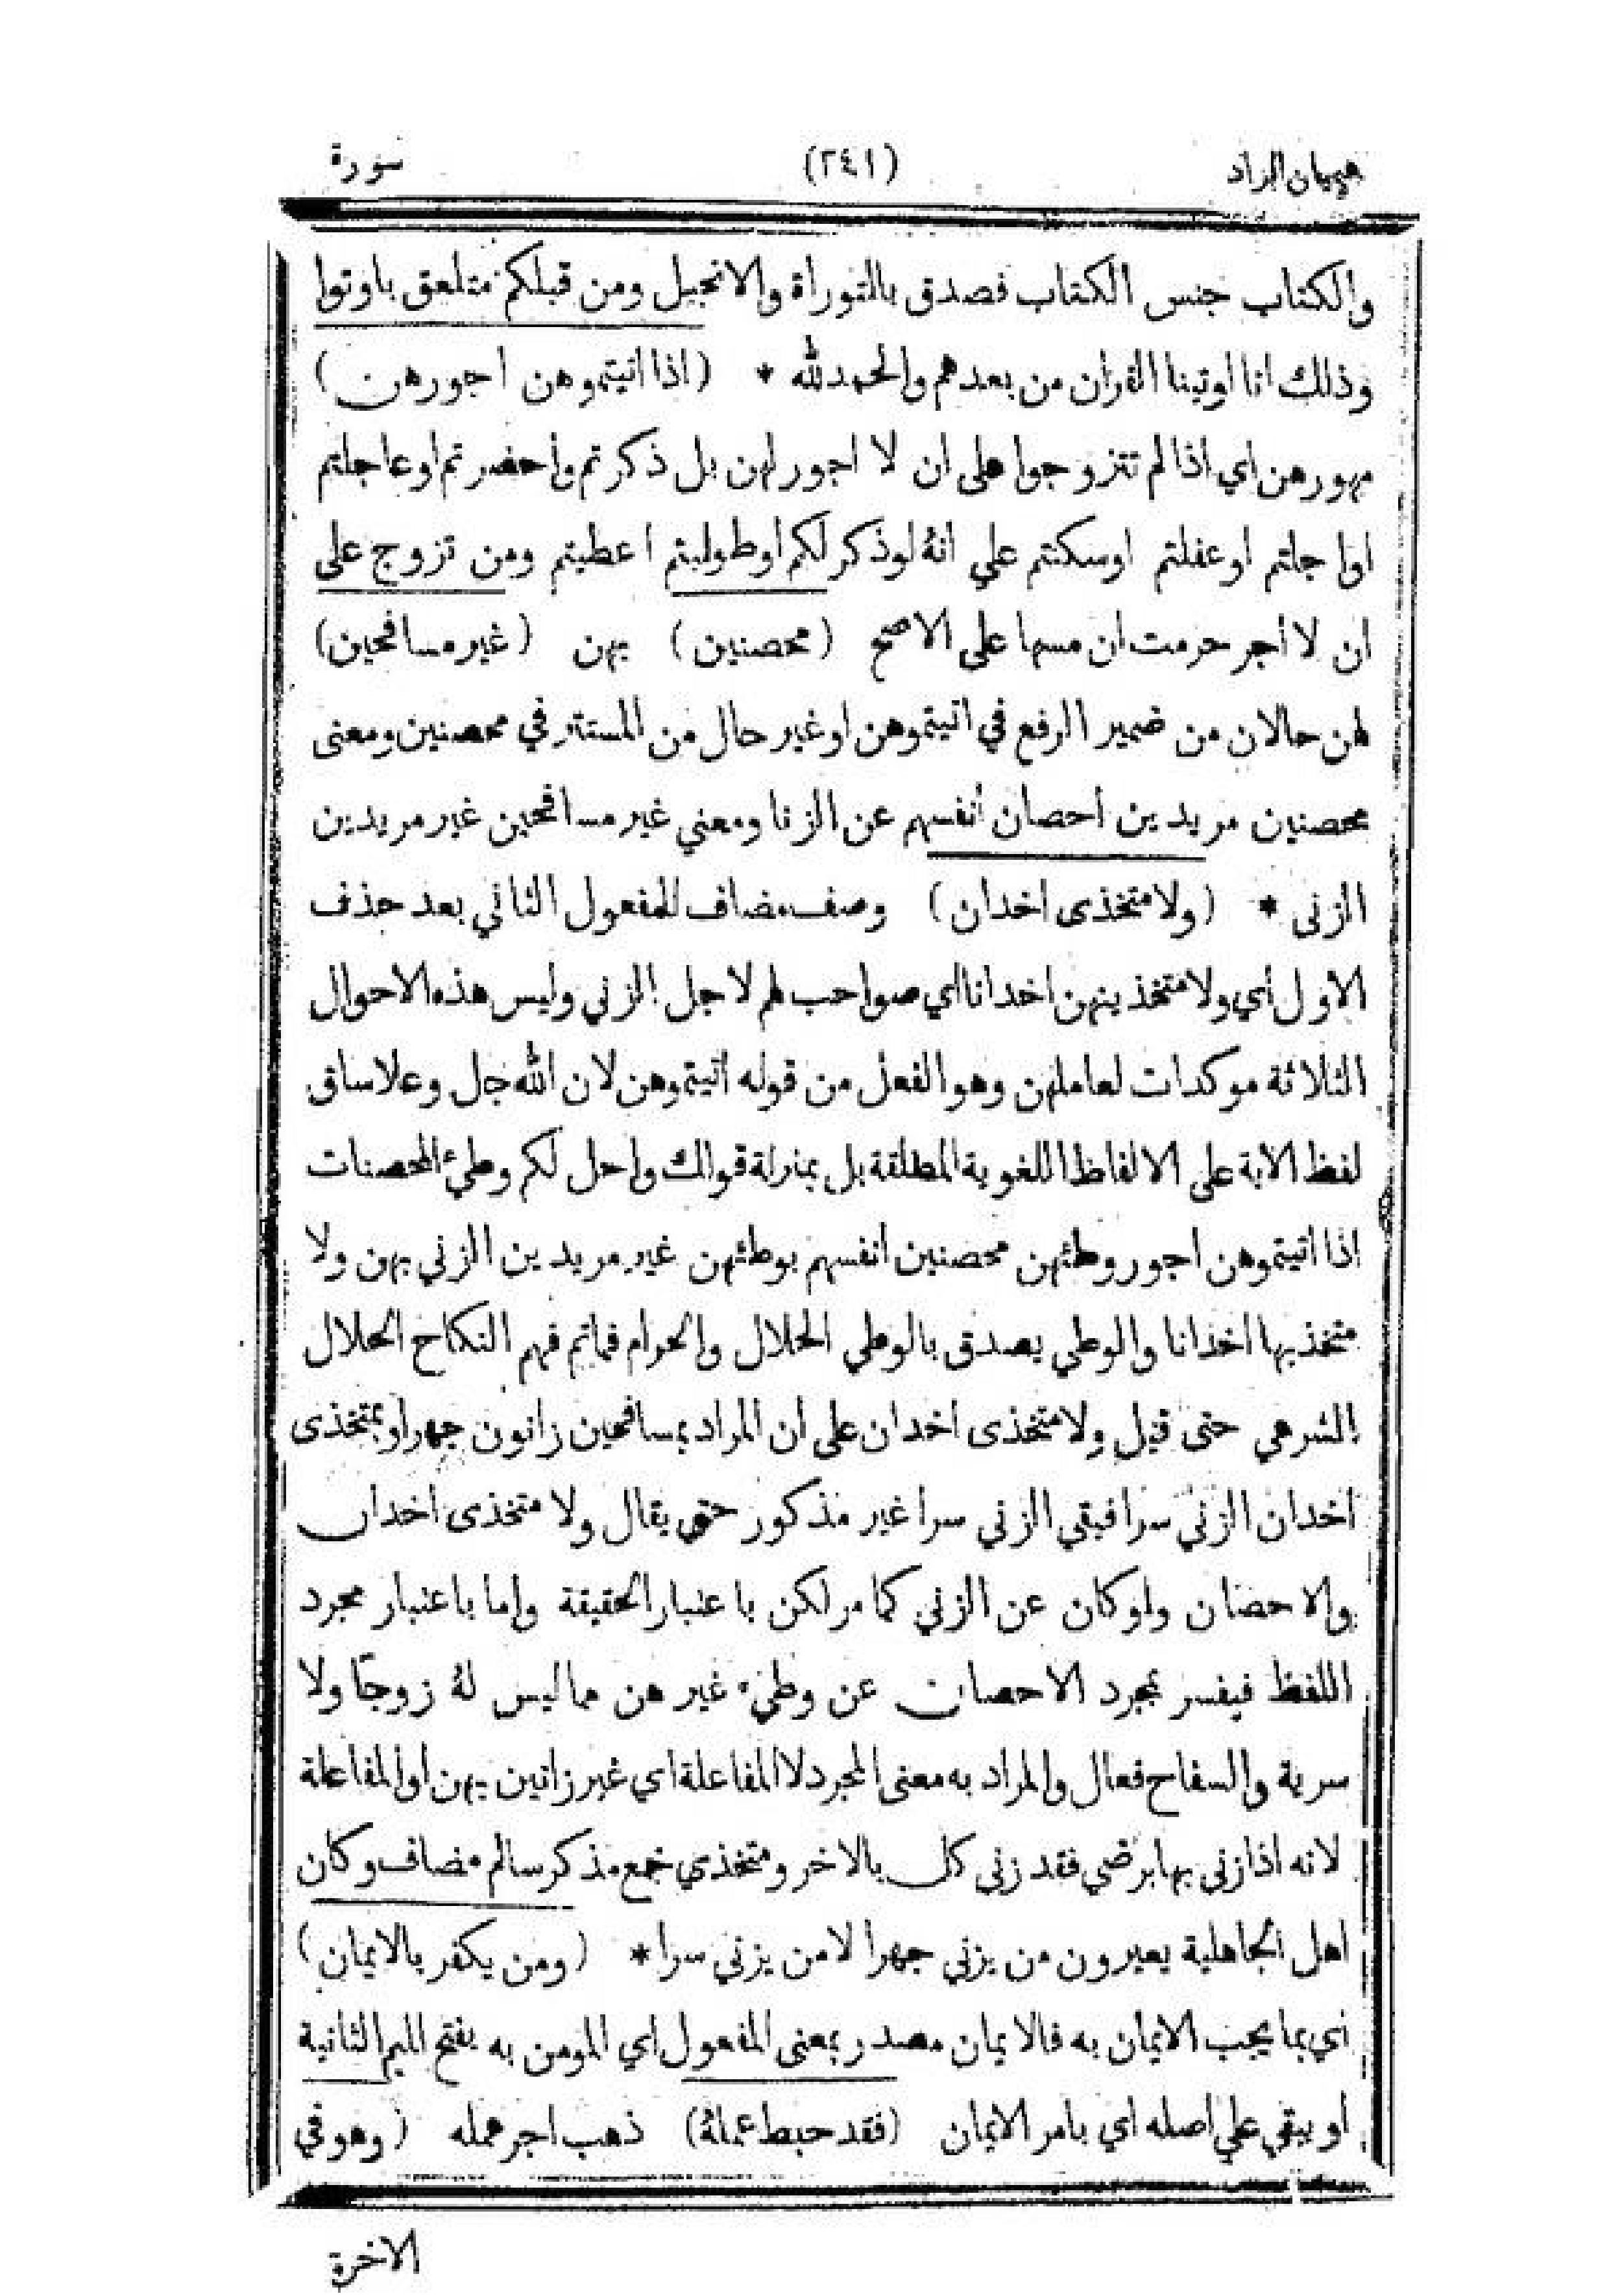 هيميان الزاد (٢٤١) سورة
والكتاب جنس الكتاب فصدق بالتوراة والانجيل ومن قبلكم متعلق باوتوا
وذلك انا اوتينا القرآن من بعدهم والحمد لله * (اذا اتيتموهن اجورهن)
مهورهن اي اذا لم تتزوجوا على ان لا اجور لهن بل ذكرتم وأحضرتم او عاجلتم
او اجلتم او غفلتم او سكتم علي انهٔ لو ذكر لكم او طولبتم اعطيتم ومن تزوج على
ان لا أجر حرمت ان مسها على الاصح (محصنين) بهن (غير مسافحين)
لهن حالان من ضمير الرفع في اتيتموهن او غير حال من المستتر في محصنين ومعنى
محصنين مريدين أحصان أنفسهم عن الزنا ومعني غير مسافحين غير مريدين
الزنى * (ولا متخذى اخدان) وصف مضاف للمفعول الثاني بعد حذف
الاول أي ولا متخذينهن اخدانا اي صواحب لهم لاجل الزني وليس هذه الاحوال
الثلاثة موكدات لعاملهن وهو الفعل من قوله أتيتموهن لان الله جل وعلا ساق
لفظ الاية على الالفاظ اللغوية المطلقة بل بمنزلة قولك واحل لكم وطيء المحصنات
اذا اتيتموهن اجور وطئهن محصنين انفسهم بوطئهن غير مريدين الزني بهن ولا
متخذيها اخدانا والوطي يصدق بالوطي الحلال والحرام فما تم فهم النكاح الحلال
الشرعي حتى قيل ولا متخذى اخدان على ان المراد بمسافحين زانون جهرا وبمتخذى
اخدان الزني سرا فيقي الزني سرا غير مذكور حتى يقال ولا متخذى اخدان
والاحصان ولو كان عن الزني كما مر لكن باعتبار الحقيقة واما باعتبار مجرد
اللفظ فيفسر بمجرد الاحصان عن وطيء غير هن مما ليس لهٔ زوجًا ولا
سرية والسفاح فعال والمراد به معنى المجرد لا المفاعلة اي غير زانين بهن او المفاعلة
لانه اذا زنى بها برضي فقد زنى كل بالاخر ومتخذي جمع مذكر سالم مضاف وكان
اهل الجاهلية يعيرون من يزني جهرا لا من يزني سرا * (ومن يكفر بالايمان)
أي بما يجب الايمان به فالايمان مصدر بمعنى المفعول اي المومن به بفتح الميم الثانية
او يبقي علي اصله اي بامر الايمان (فقد حبط عملهٔ) ذهب اجر عمله (وهو في
الاخرة